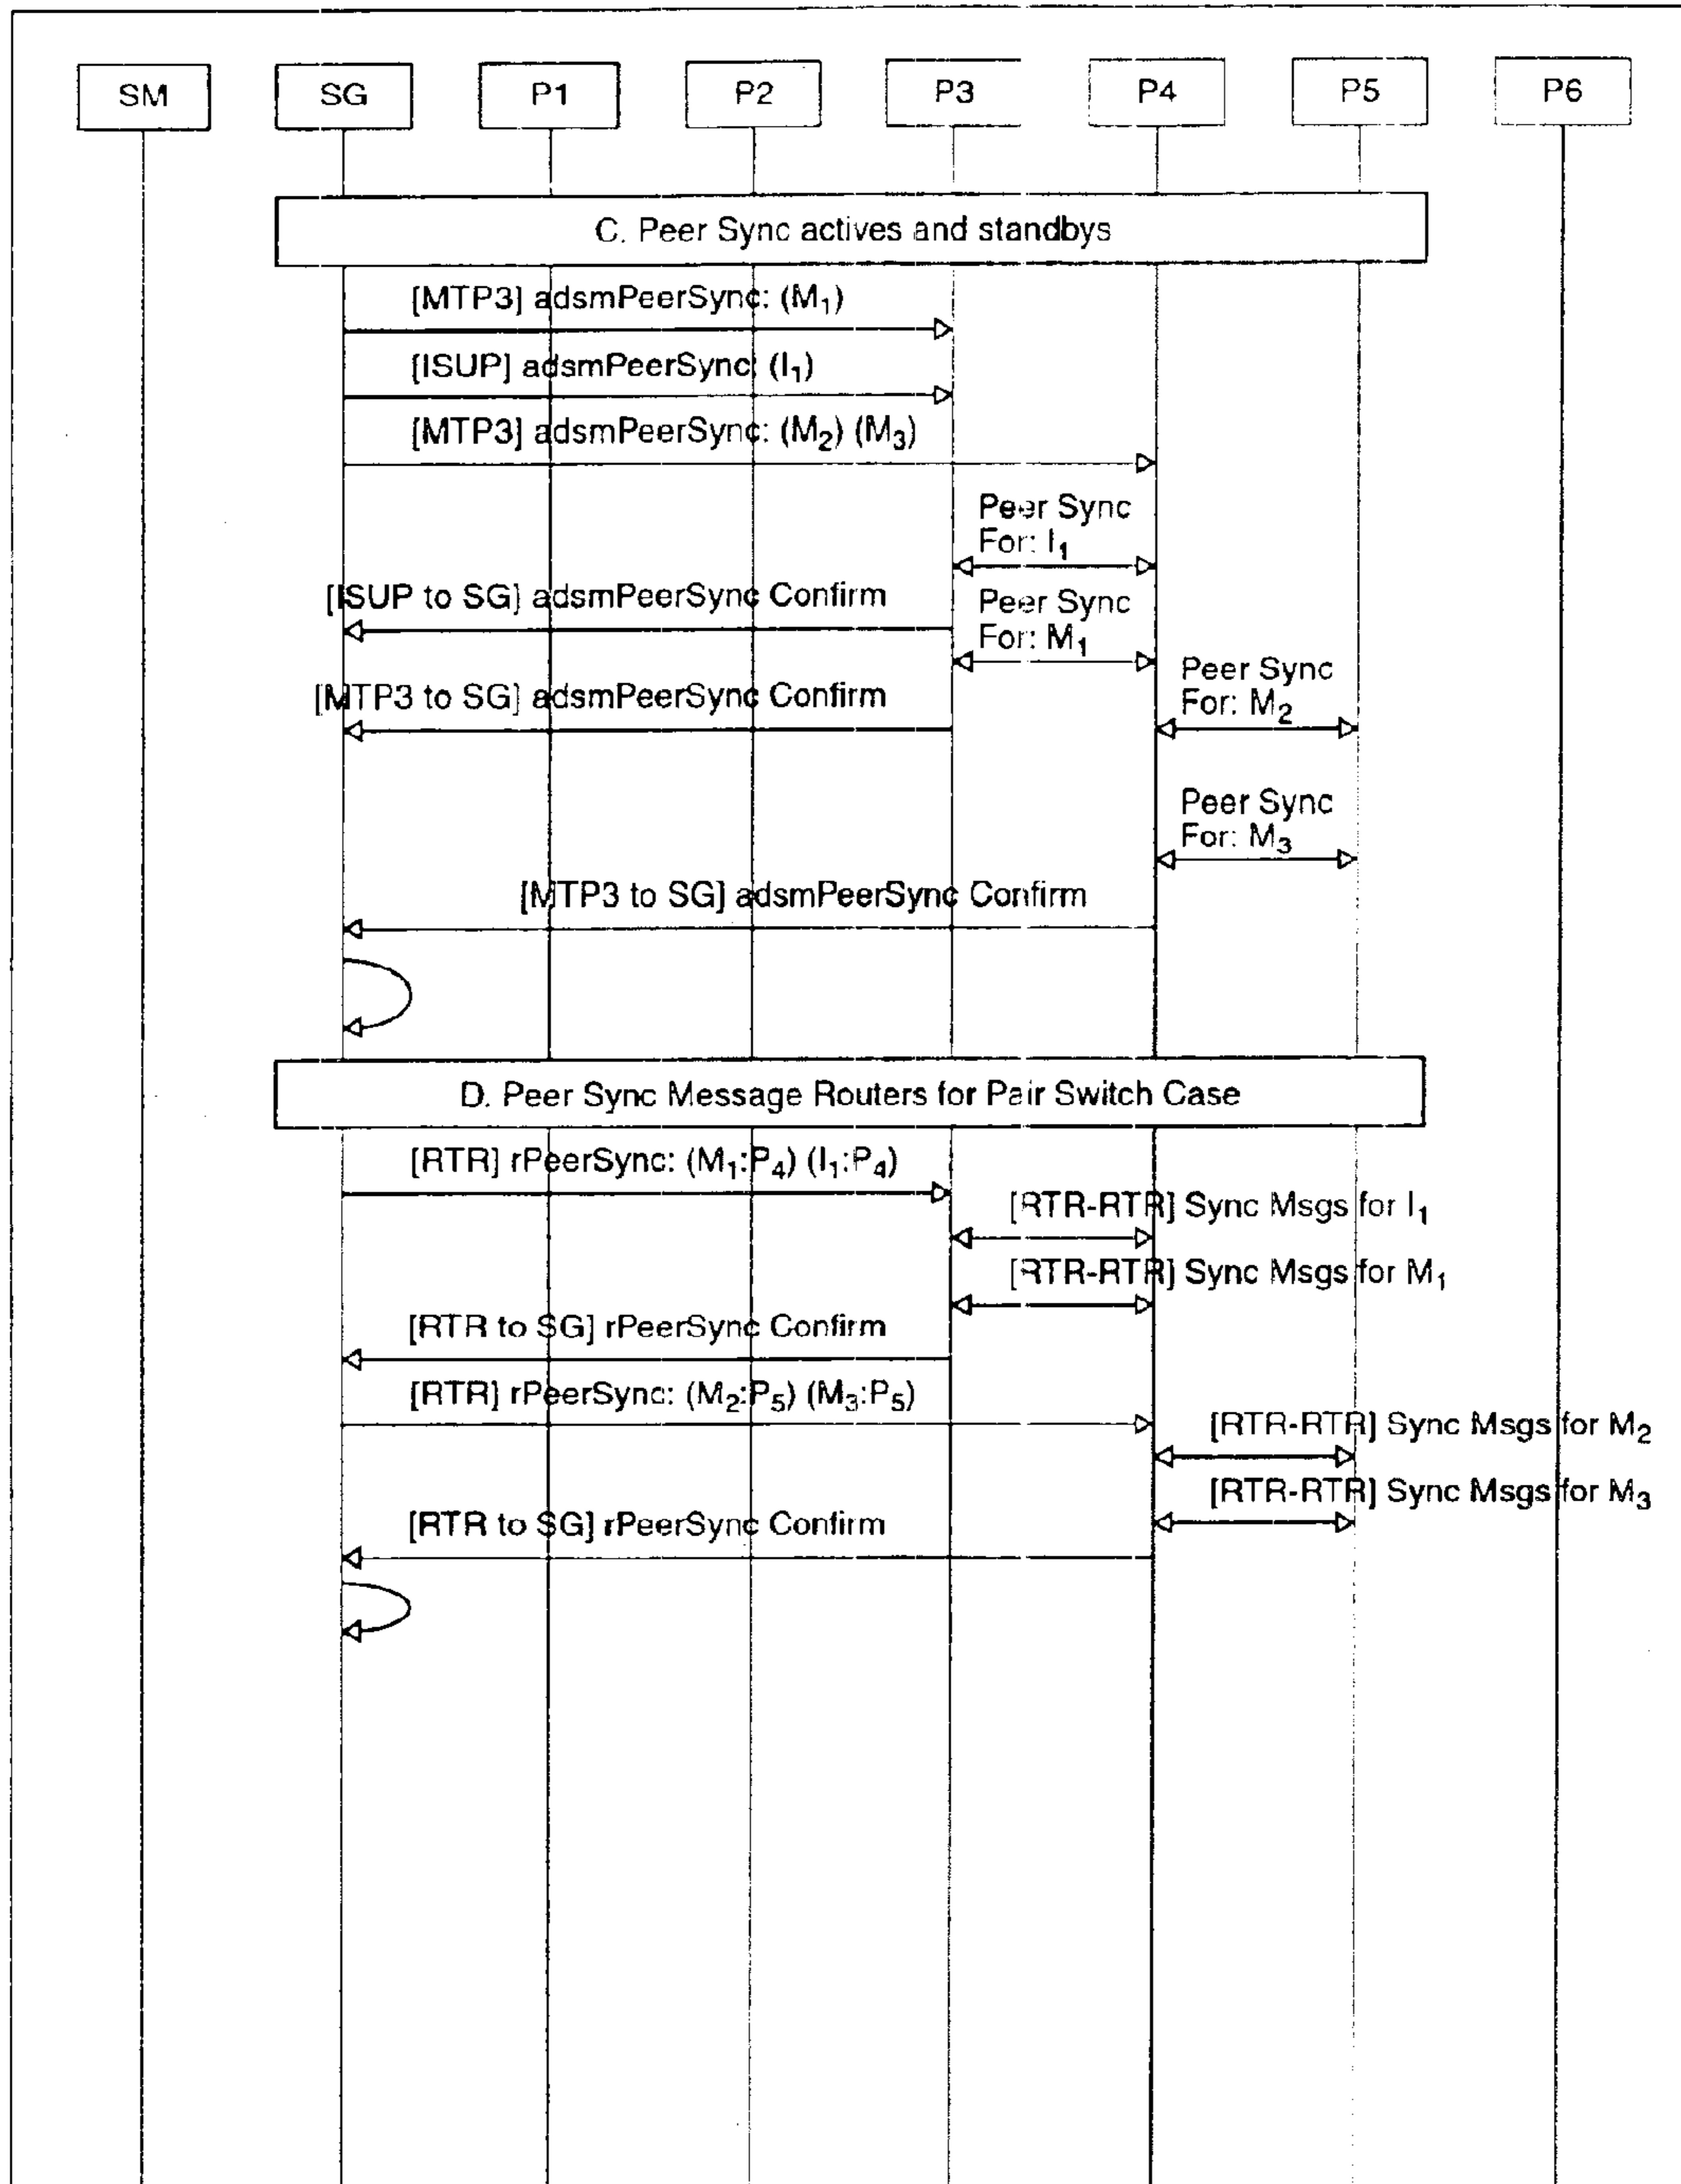 SM SG P1 P2 P3 P4 P5 P6
C. Peer Sync actives and standbys
[MTP3] adsmPeerSync: (M₁)
[ISUP] adsmPeerSync: (I₁)
[MTP3] adsmPeerSync: (M₂) (M₃)
Peer Sync
For: I₁
[ISUP to SG] adsmPeerSync Confirm
Peer Sync
For: M₁
[MTP3 to SG] adsmPeerSync Confirm
Peer Sync
For: M₂
Peer Sync
For: M₃
[MTP3 to SG] adsmPeerSync Confirm
D. Peer Sync Message Routers for Pair Switch Case
[RTR] rPeerSync: (M₁:P₄) (I₁:P₄)
[RTR-RTR] Sync Msgs for I₁
[RTR-RTR] Sync Msgs for M₁
[RTR to SG] rPeerSync Confirm
[RTR] rPeerSync: (M₂:P₅) (M₃:P₅)
[RTR-RTR] Sync Msgs for M₂
[RTR-RTR] Sync Msgs for M₃
[RTR to SG] rPeerSync Confirm